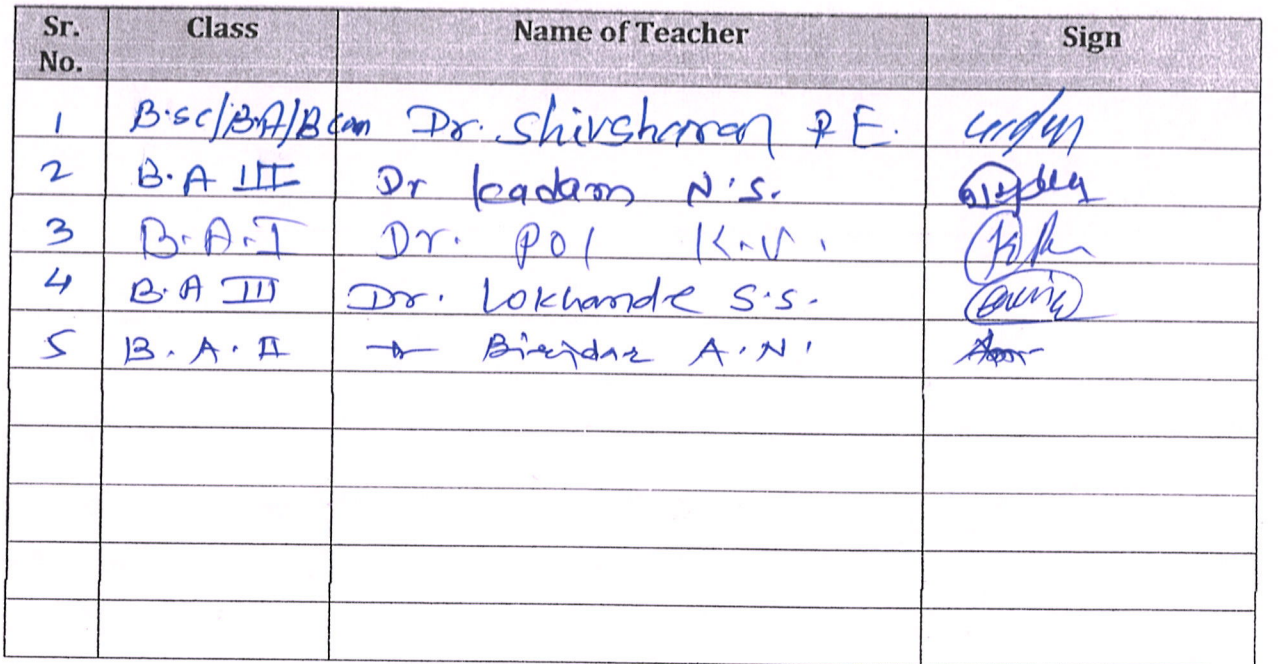 Sr. No. Class Name of Teacher Sign
1 B.sc/B.A/B com Dr. Shivsharan P.E.
2 B.A III Dr Kadam N.S.
3 B.A.I Dr. Pol K.V.
4 B.A III Dr. Lokhande S.S.
5 B.A.II Birajdar A.N.